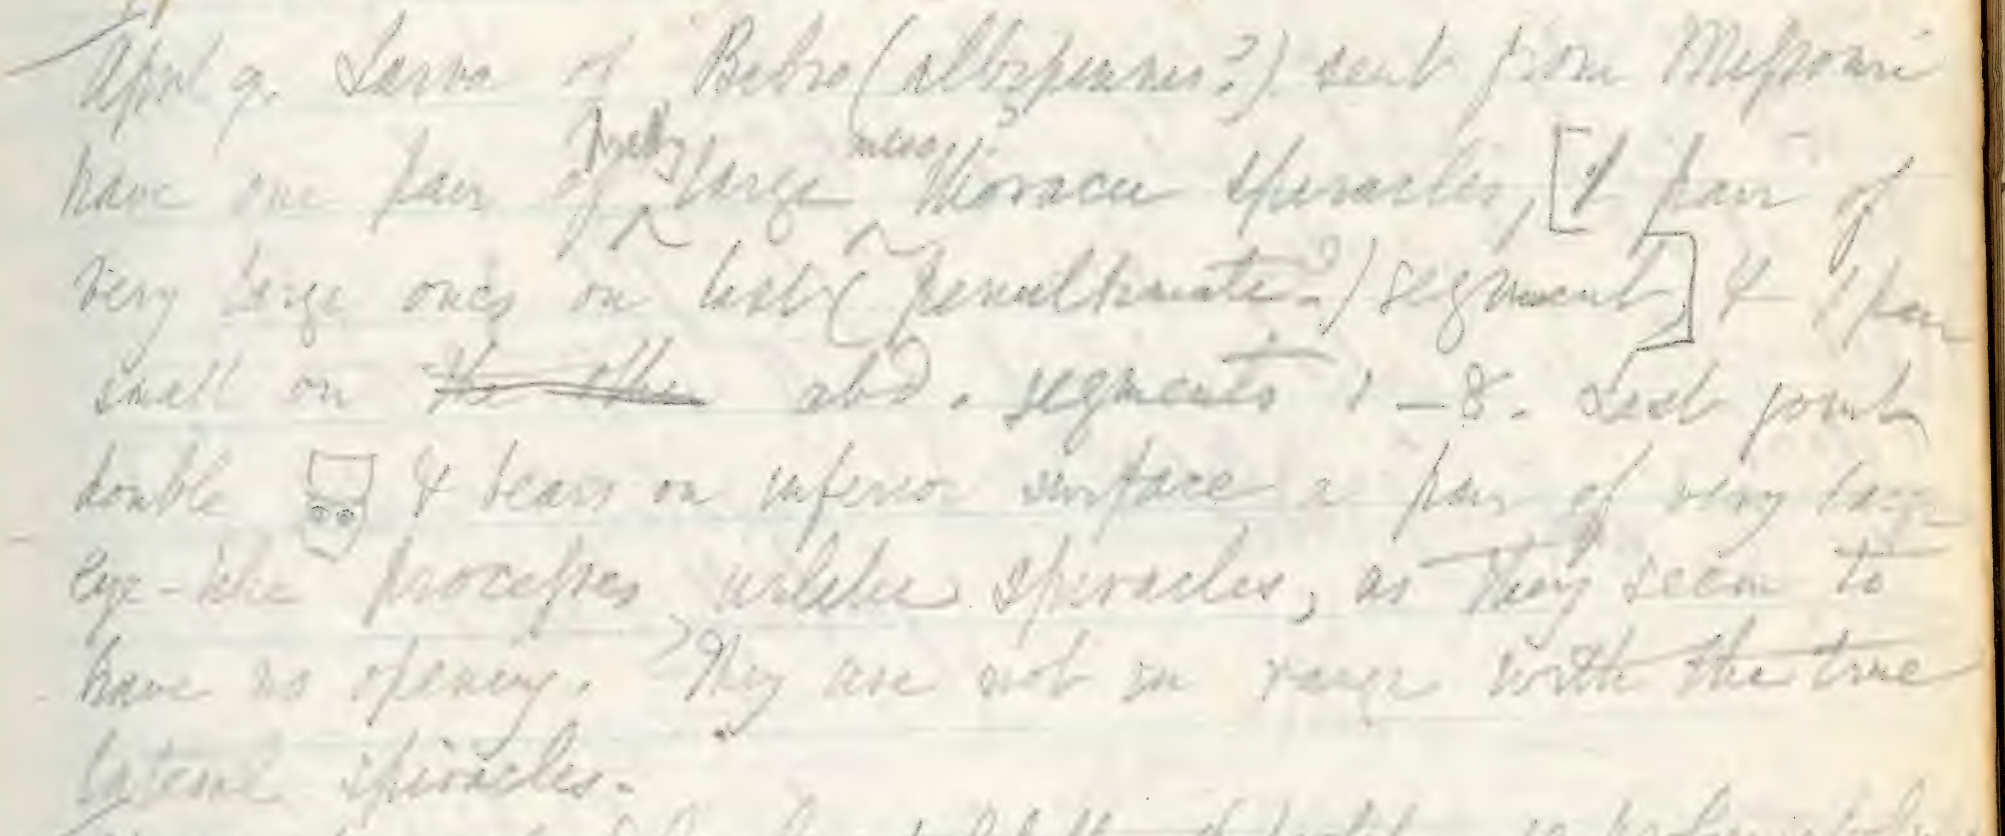 April 9. Larva of Bibio (albipennis?) sent from Missouri
have one pair of pretty large meso? thoracic spiracles, [1 pair of
very large ones on last (penultimate?) segment] & 1 pair
small on the other abd. segments 1–8. Last joint
double & bears on inferior surface a pair of very large
eye-like processes unlike spiracles, as they seem to
have no opening. They are not in range with the true
lateral spiracles.